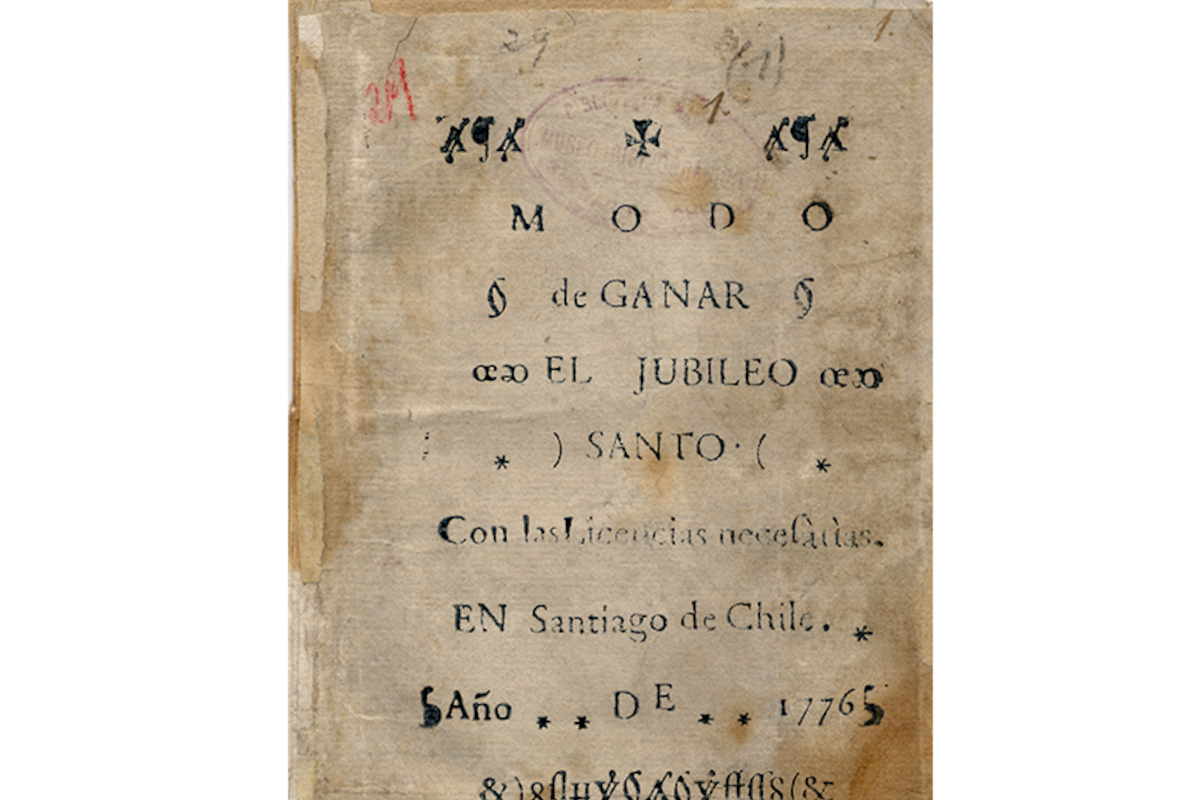 29
(1)
1.
1.
✠
M O D O
de GANAR
EL JUBILEO
* ) SANTO · ( *
Con las Licencias neceſàrìas.
EN Santiago de Chile. *
Año * * DE * * 1776